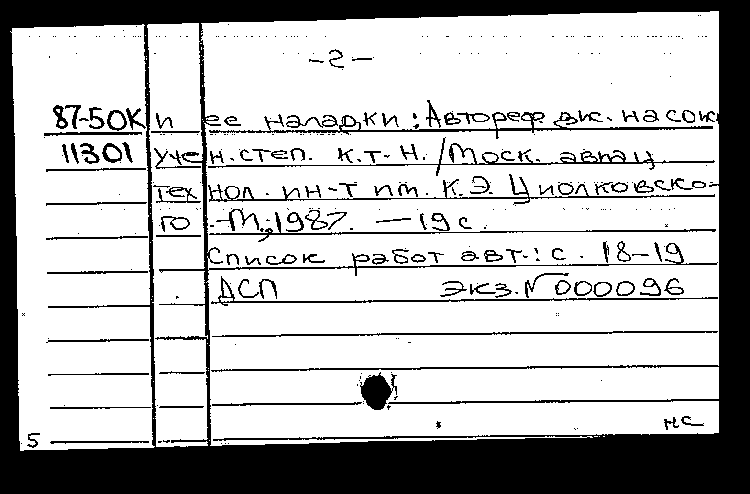 -2-
87-50К и ее наладки: Автореф дис. на соик
11301 учен. степ. к.т.н. / Моск. авиац.
технол. ин-т им. К.Э. Циолковско-
го. -М., 1987. - 19 с.
Список работ авт.: с. 18-19
ДСП экз. № 000096
нс
5